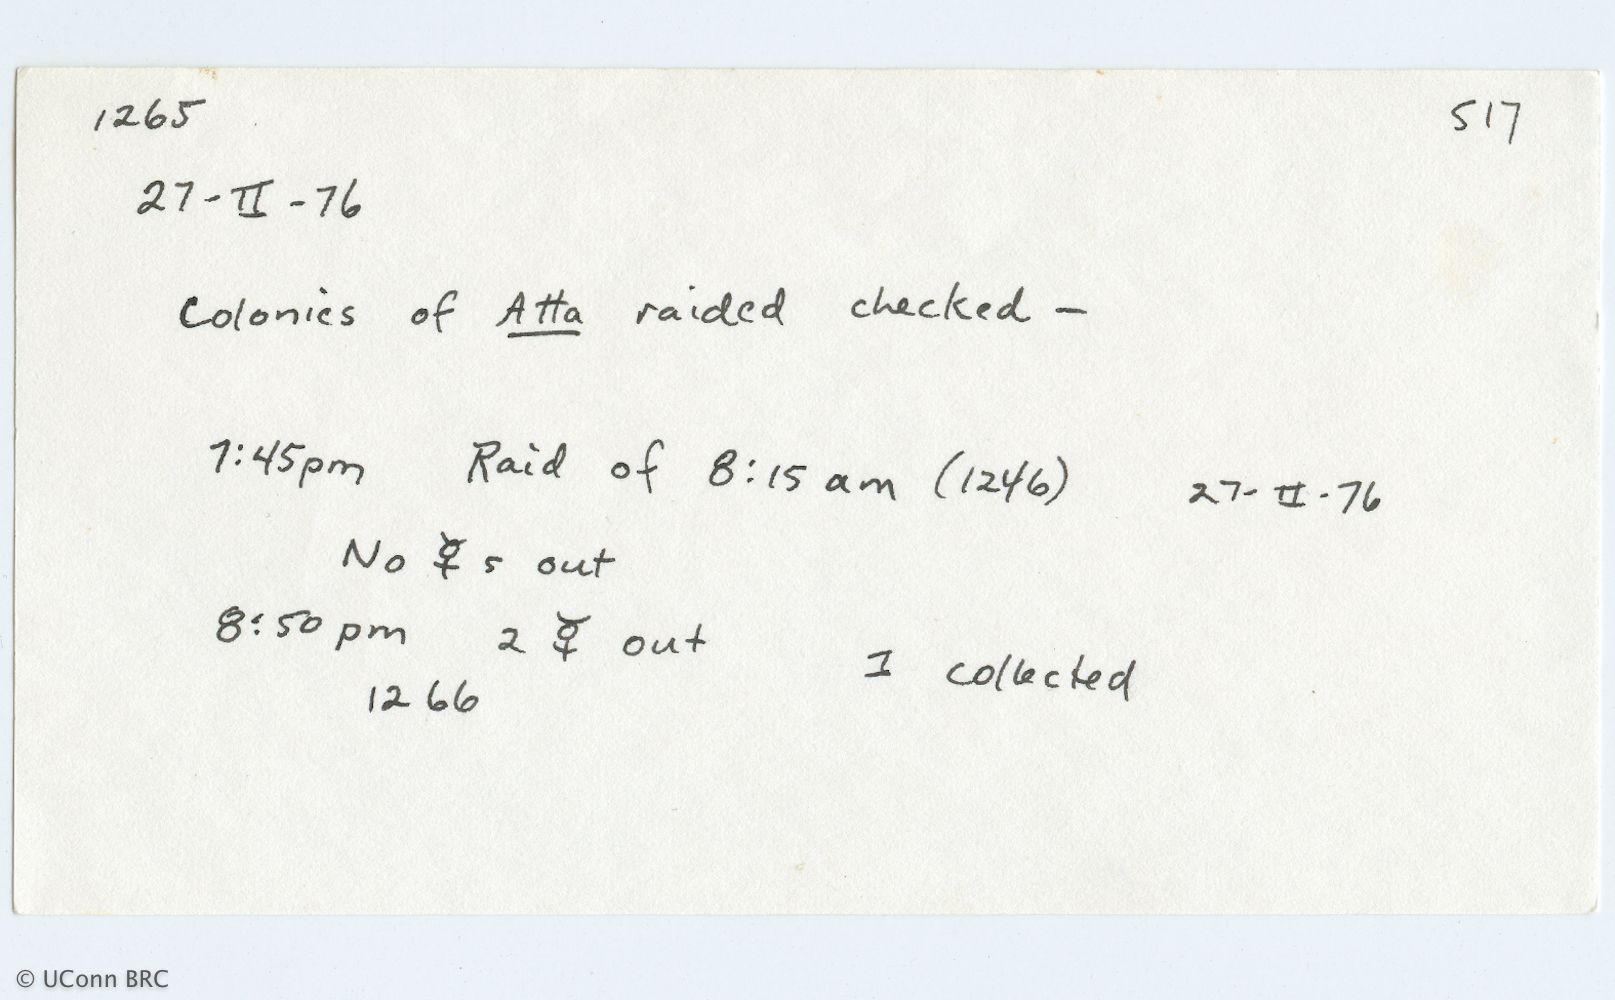 1265 517
27-II-76
Colonies of Atta raided checked -
7:45pm Raid of 8:15 am (1246) 27-II-76
No ☿s out
8:50 pm 2 ☿ out I collected
1266
© UConn BRC